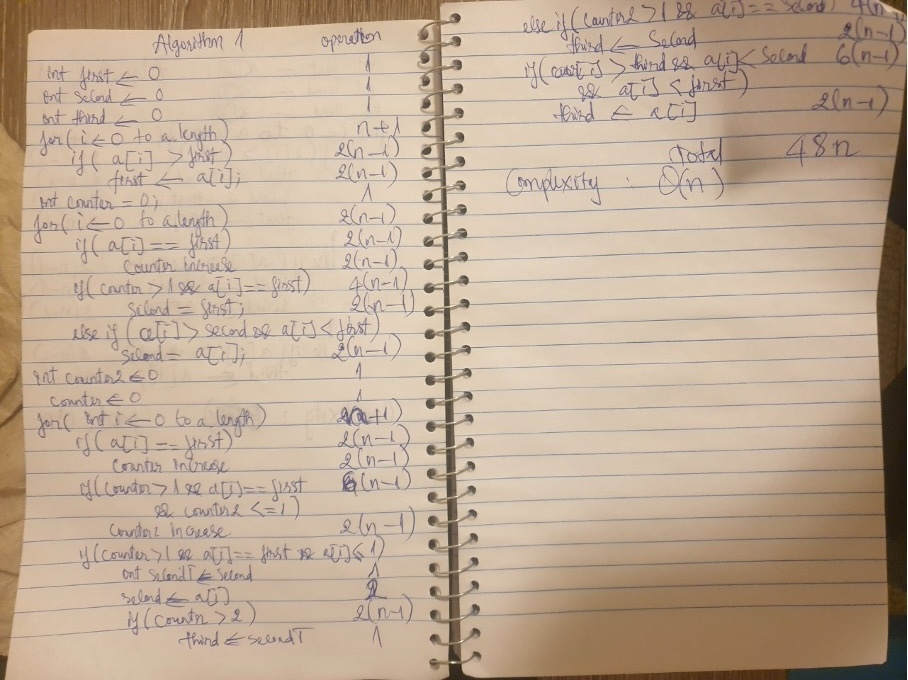 Algorithm 1 operation
int first ← 0 1
int second ← 0 1
int third ← 0 1
for( i ← 0 to a.length) n+1
if( a[i] > first) 2(n-1)
first ← a[i]; 2(n-1)
int counter = 0; 1
for( i ← 0 to a.length) 2(n-1)
if( a[i] == first) 2(n-1)
counter increase 2(n-1)
if( counter > 1 && a[i] == first) 4(n-1)
second = first; 2(n-1)
else if (a[i] > second && a[i] < first)
second = a[i]; 2(n-1)
int counter2 ← 0 1
counter ← 0 1
for( int i ← 0 to a.length) 2(n+1)
if( a[i] == first) 2(n-1)
counter increase 2(n-1)
if( counter > 1 && a[i] == first (n-1)
&& counter2 <= 1)
counter2 increase 2(n-1)
if( counter > 1 && a[i] == first && a[i] ≤ 1)
int secondT ← second 1
second ← a[i] 2
if( countr > 2) 2(n-1)
third ← secondT 1
else if( counter2 > 1 && a[i] == second) 4(n-1)
third ← second 2(n-1)
if( a[i] > third && a[i] < second 6(n-1)
&& a[i] < first)
third ← a[i] 2(n-1)
Total 48n
Complexity : O(n)